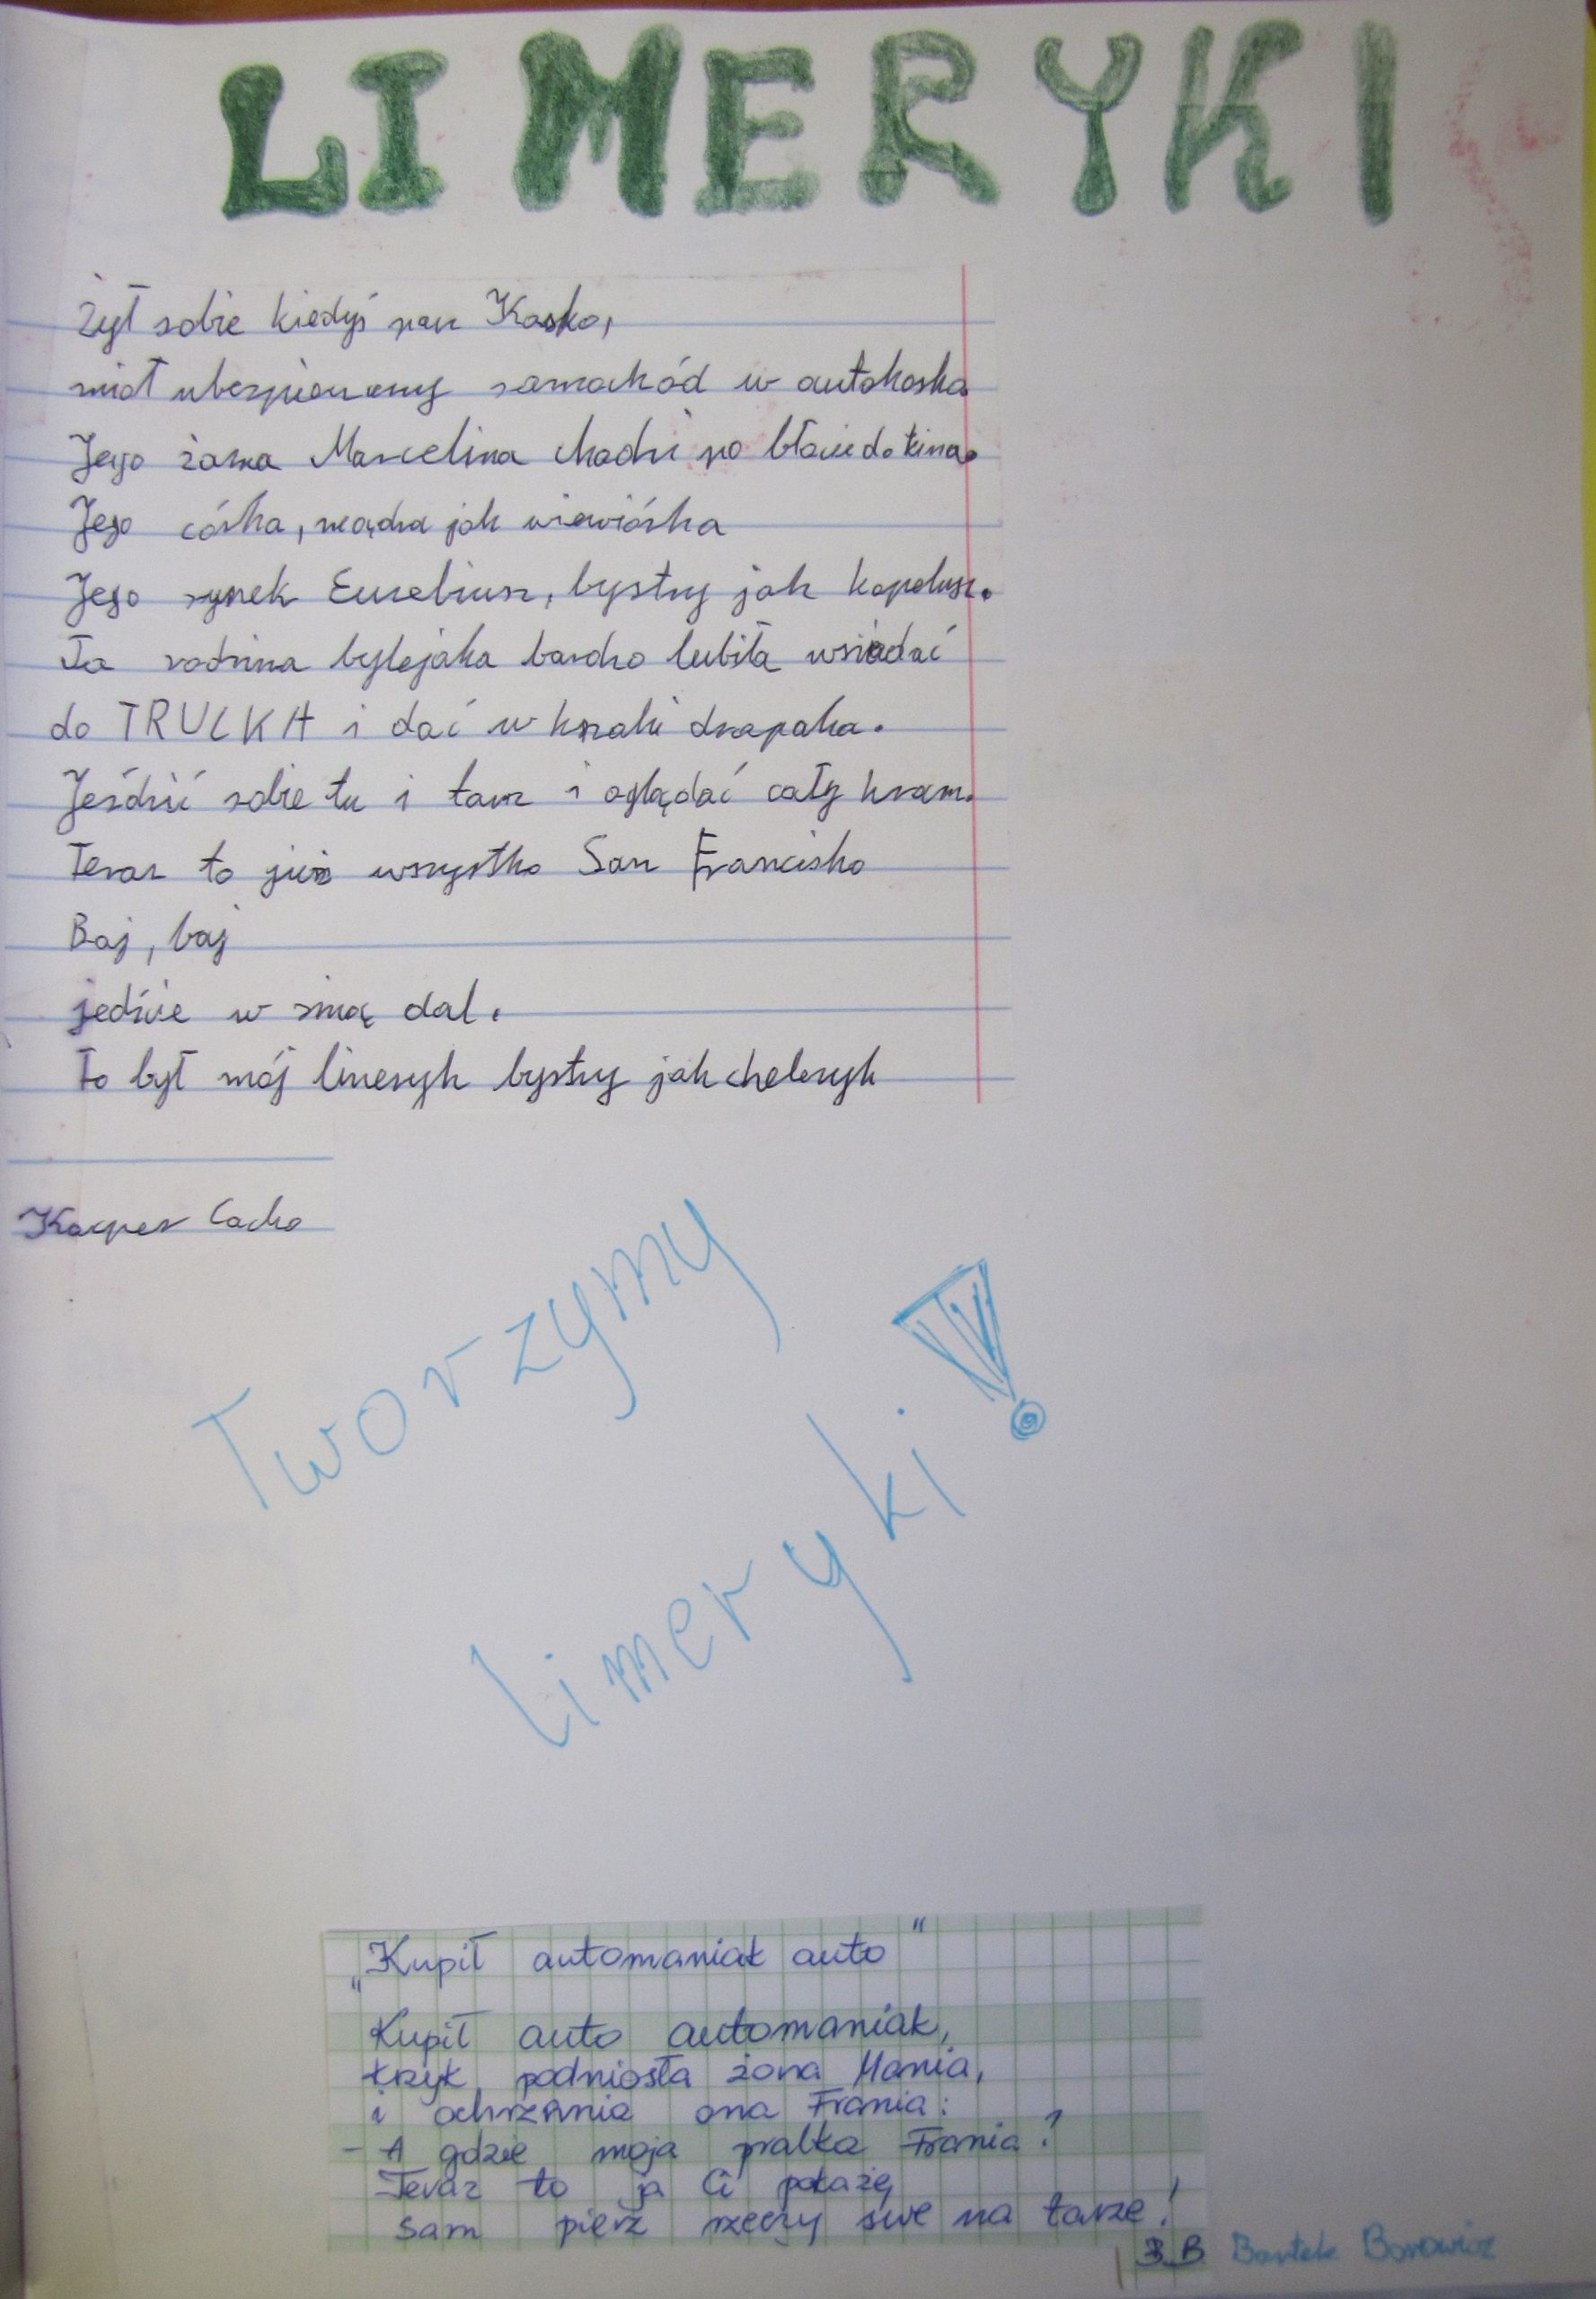 LIMERYKI
Żył sobie kiedyś pan Kasko,
miał ubezpieczony samochód w autokasko.
Jego żona Marcelina chodzi po błocie do kina.
Jego córka, mądra jak wiewiórka
Jego synek Euzebiusz, bystry jak kapelusz.
Ta rodzina bylejaka bardzo lubiła wsiadać
do TRUCKA i dać w krzaki drapaka.
Jeździć sobie tu i tam i oglądać cały kram.
Teraz to już wszystko San Francisko
Baj, baj
jedźcie w siną dal.
To był mój limeryk bystry jak choleryk
Kacper Cacko
Tworzymy
limeryki!
„Kupił automaniak auto"
Kupił auto automaniak,
krzyk podniosła żona Mania,
i ochrzania ona Frania:
- A gdzie moja pralka Frania?
Teraz to ja Ci pokażę
sam pierz rzeczy swe na tarze!
3 B Bartek Borowicz